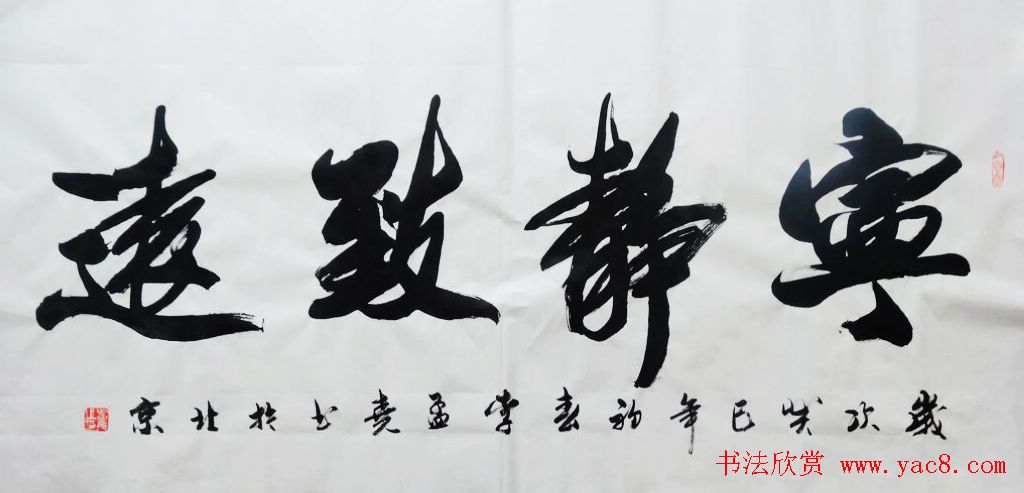 寧靜致遠
歲次癸巳年初春李孟堯书於北京
书法欣赏 www.yac8.com